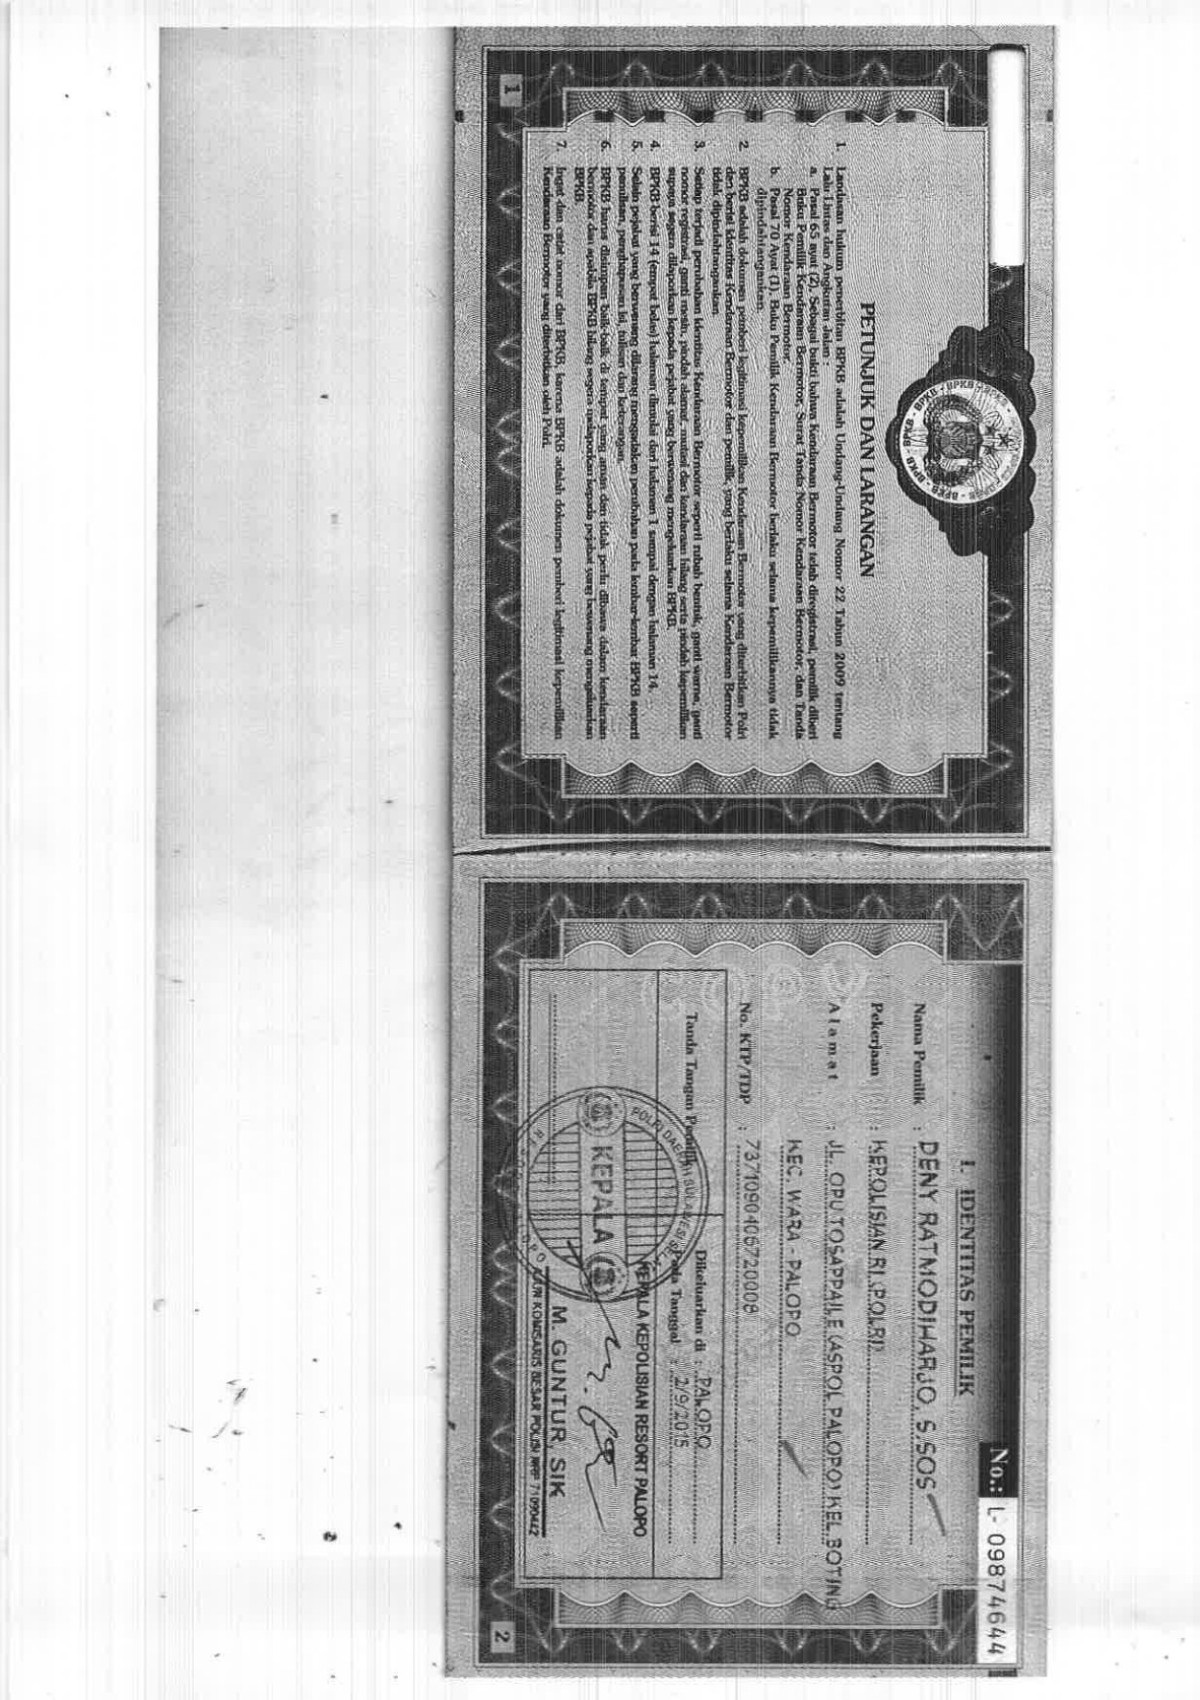 PETUNJUK DAN LARANGAN
1. Landasan hukum penerbitan BPKB adalah Undang-Undang Nomor 22 Tahun 2009 tentang
Lalu Lintas dan Angkutan Jalan :
a. Pasal 65 ayat (2), Sebagai bukti bahwa Kendaraan Bermotor telah diregistrasi, pemilik diberi
Buku Pemilik Kendaraan Bermotor, Surat Tanda Nomor Kendaraan Bermotor, dan Tanda
Nomor Kendaraan Bermotor.
b. Pasal 70 Ayat (1), Buku Pemilik Kendaraan Bermotor berlaku selama kepemilikannya tidak
dipindahtangankan.
2. BPKB adalah dokumen pemberi legitimasi kepemilikan Kendaraan Bermotor yang diterbitkan Polri
dan berisi identitas Kendaraan Bermotor dan pemilik, yang berlaku selama Kendaraan Bermotor
tidak dipindahtangankan.
3. Setiap terjadi perubahan identitas Kendaraan Bermotor seperti rubah bentuk, ganti warna, ganti
nomor registrasi, ganti mesin, pindah alamat, mutasi dan kendaraan hilang serta pindah kepemilikan
supaya segera dilaporkan kepada pejabat yang berwenang mengeluarkan BPKB.
4. BPKB berisi 14 (empat belas) halaman dimulai dari halaman 1 sampai dengan halaman 14.
5. Selain pejabat yang berwenang dilarang mengadakan perubahan pada lembar-lembar BPKB seperti
penulisan, penghapusan isi, tulisan dan keterangan.
6. BPKB harus disimpan baik-baik di tempat yang aman dan tidak perlu dibawa dalam kendaraan
bermotor dan apabila BPKB hilang segera melaporkan kepada pejabat yang berwenang mengeluarkan
BPKB.
7. Ingat dan catat nomor dari BPKB, karena BPKB adalah dokumen pemberi legitimasi kepemilikan
Kendaraan Bermotor yang diterbitkan oleh Polri.
1
No.: L- 09874644
I. IDENTITAS PEMILIK
Nama Pemilik : DENY RATMODIHARJO, S.SOS
Pekerjaan : KEPOLISIAN RI (POLRI)
Alamat : JL. OPU TOSAPPAILE (ASPOL PALOPO) KEL BOTING
KEC. WARA - PALOPO
No. KTP/TDP : 7371090406720008
Dikeluarkan di : PALOPO
Pada Tanggal : 2/9/2015
Tanda Tangan Pemilik
KEPALA KEPOLISIAN RESORT PALOPO
POLRI DAERAH SULAWESI SEL
KEPALA
M. GUNTUR, SIK
KOMISARIS BESAR POLISI NRP 71090442
2